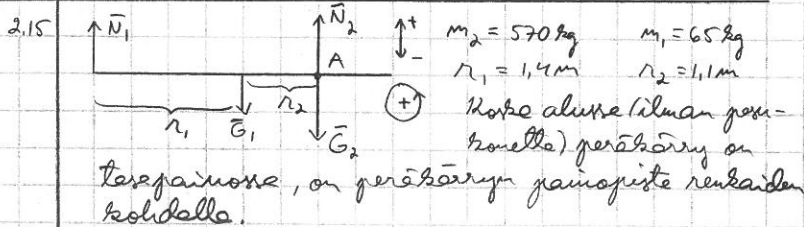 2.15 N̄₁ N̄₂ + − m₂ = 570 kg m₁ = 65 kg
A r₁ = 1,4 m r₂ = 1,1 m
r₁ Ḡ₁ r₂ Ḡ₂ + Koska alussa (ilman pesu-
konetta) peräkärry on
tasapainossa, on peräkärryn painopiste renkaiden
kohdalla.